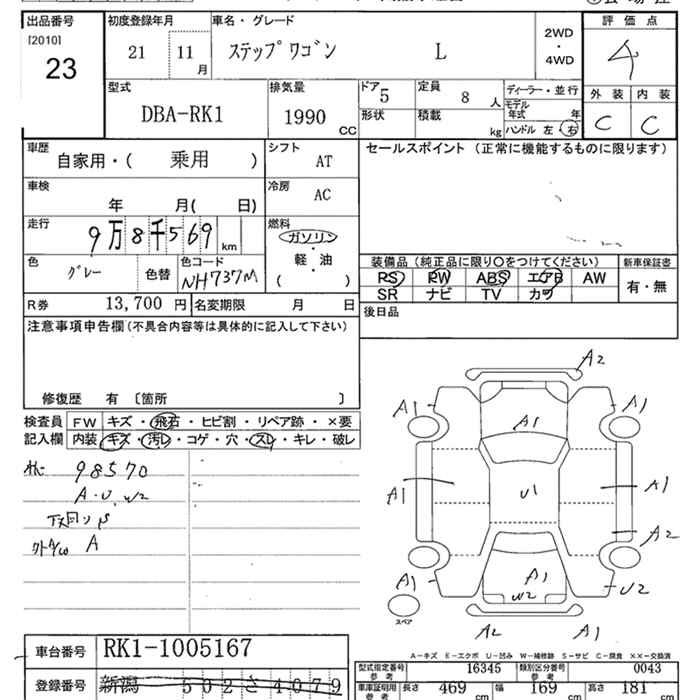 出品番号 初度登録年月 車名・グレード 2WD・4WD 評価点
[2010] 23 21 11月 ステップワゴン L 4
型式 排気量 ドア 5 定員 8人 ディーラー・並行 外装 内装
DBA-RK1 1990 CC 形状 積載 kg モデル年式 年 C C
ハンドル 左・右
車歴 自家用・( 乗用 ) シフト AT セールスポイント (正常に機能するものに限ります)
車検 年 月( 日) 冷房 AC
走行 9万8千569 km 燃料 ガソリン
軽・油
( )
色 グレー 色替 色コード NH737M 装備品 (純正品に限り○をつけてください) 新車保証書
RS RW ABS エアB AW 有・無
SR ナビ TV カワ
R券 13,700円 名変期限 月 日 後日品
注意事項申告欄(不具合内容等は具体的に記入して下さい)
修復歴 有 〔箇所 〕
検査員 FW キズ・飛石・ヒビ割・リペア跡・×要
記入欄 内装 キズ・汚レ・コゲ・穴・スレ・キレ・破レ
98570
A・U、W2
下回りS
A
A2
A1 A1 A1
A1 U1 A1
A2
A1 A1 U2
W2
スペア
A2 A1
A-キズ E-エクボ U-凹み W-補修跡 S-サビ C-腐食 XX-交換済
車台番号 RK1-1005167
登録番号 新潟 502さ4079
型式指定番号 参考 16345 類別区分番号 参考 0043
車庫証明用 参考 長さ 469 cm 幅 169 cm 高さ 181 cm